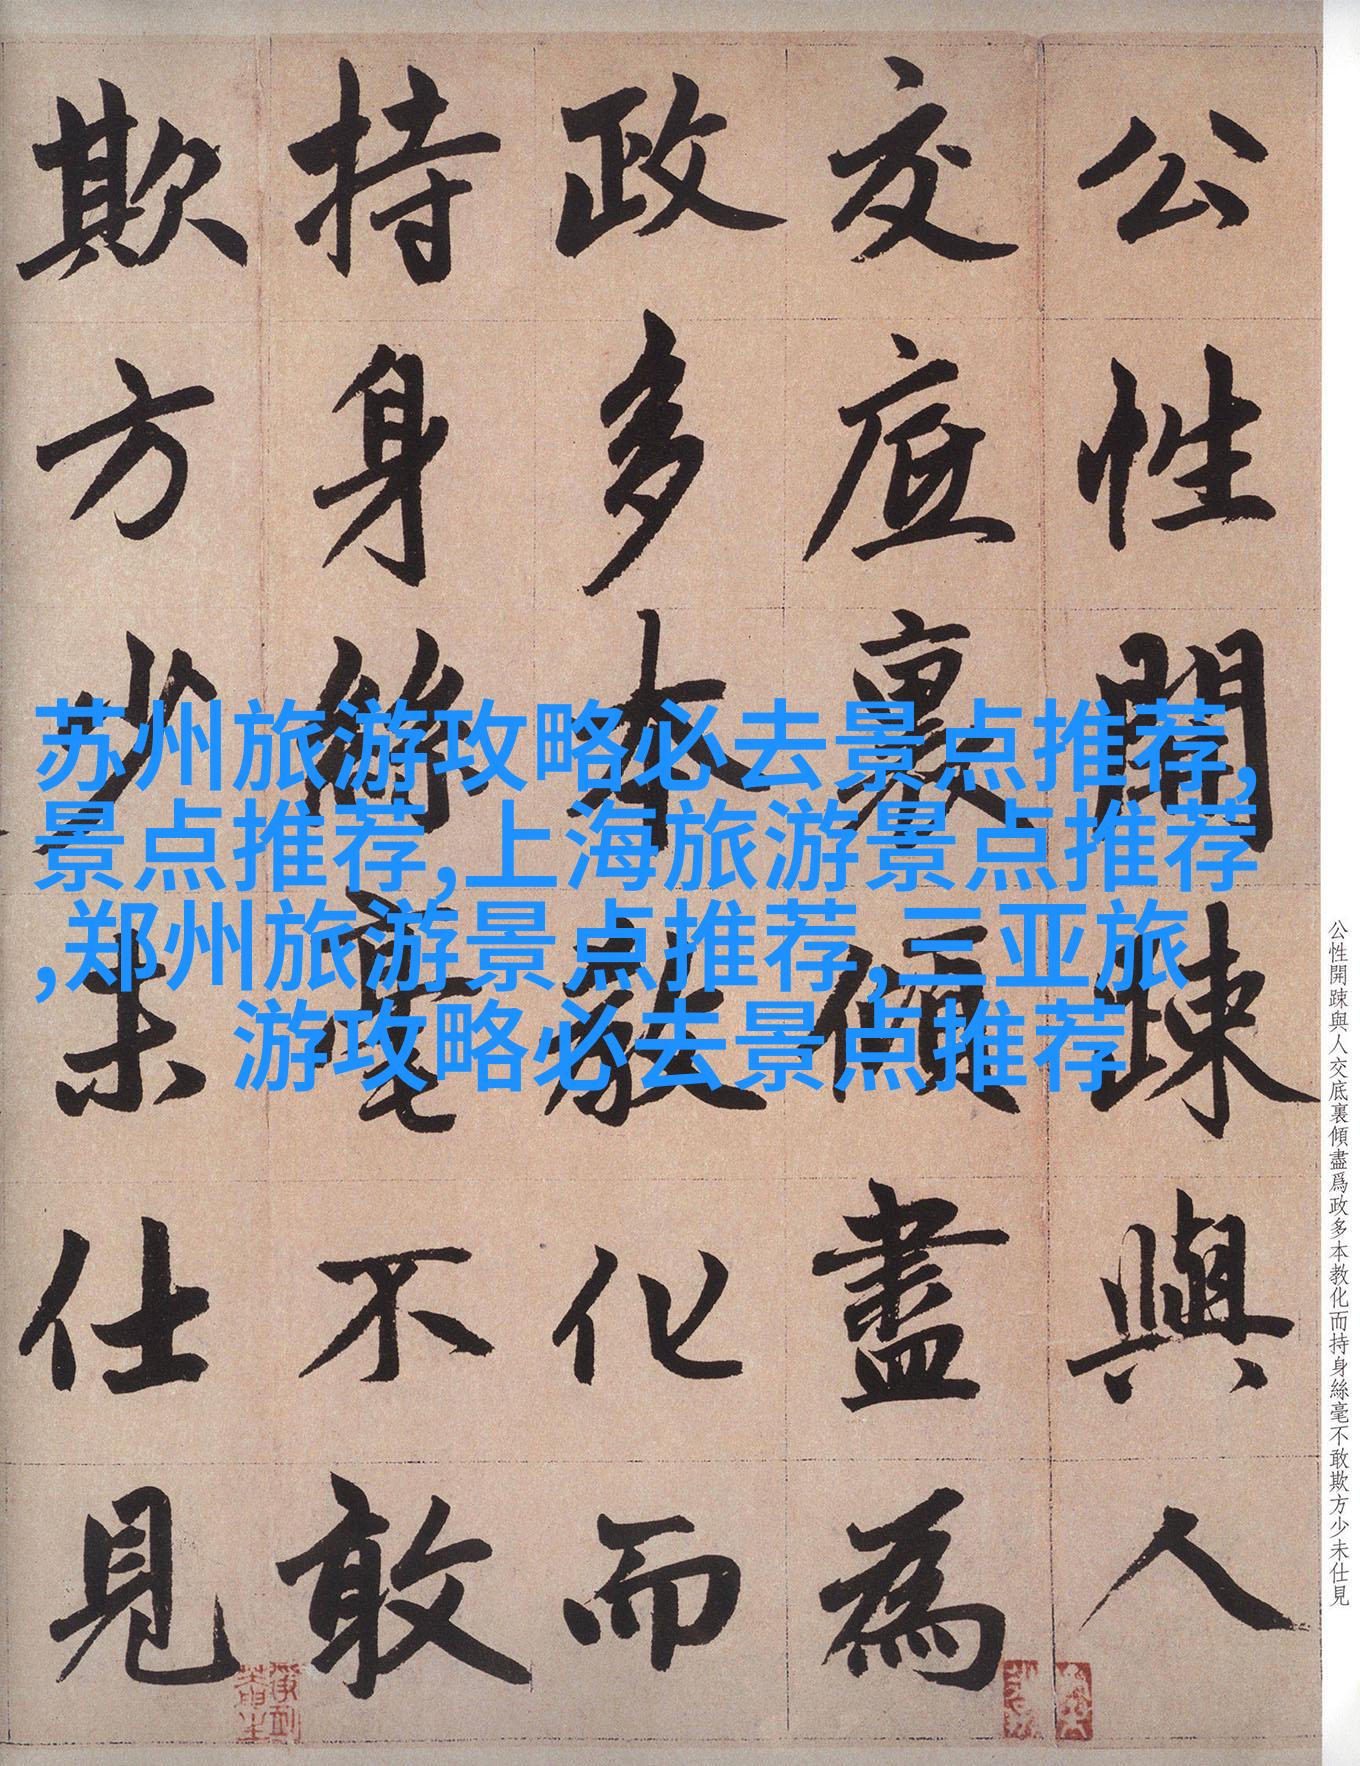 公性開踈與人
交底裏傾盡為
政多本教化而
持身絲毫不敢
欺方少未仕見
苏州旅游攻略必去景点推荐,
景点推荐,上海旅游景点推荐
,郑州旅游景点推荐,三亚旅
游攻略必去景点推荐
公性開踈與人交底裏傾盡爲政多本教化而持身絲毫不敢欺方少未仕見